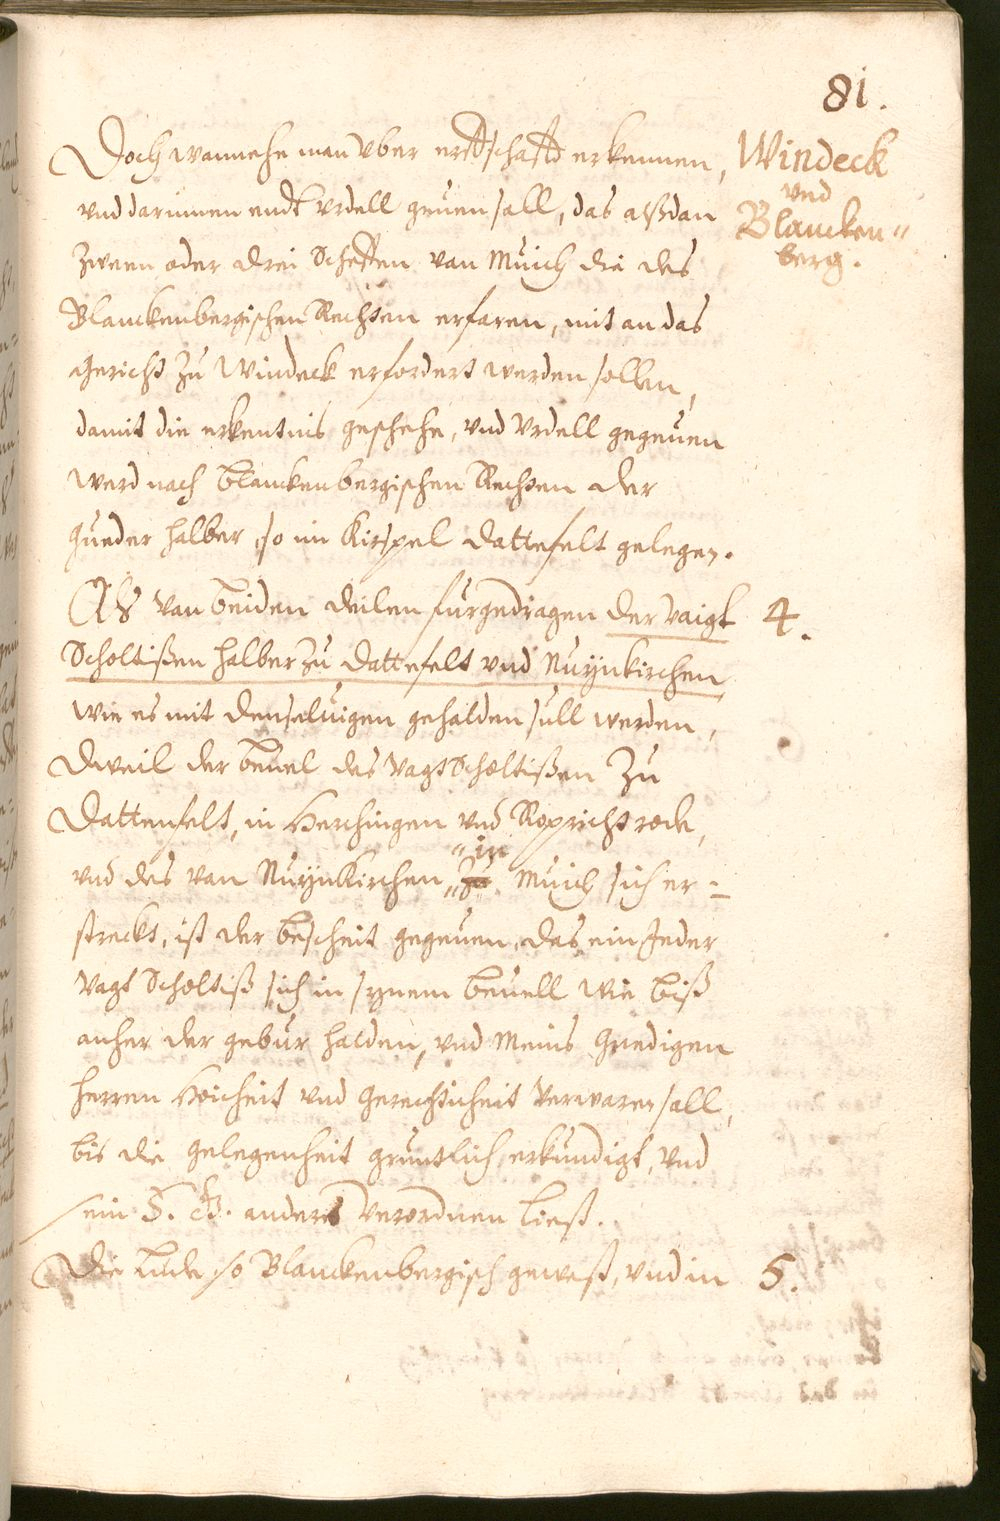 81.
Doch wannehe man vber erffschafft erkennen,
Windeck
vnd
Blancken"
berg.
vnd darumen endt vrdell geuen sall, das alßdan
zween oder drei Scheffen van Münch die des
Blanckenbergischen Rechten erfaren, mit an das
gericht zu Windeck erfordert werden sollen,
damit die erkentnis geschehe, vnd vrdell gegeuen
werd nach Blanckenbergischen Rechten der
gueder halber, so im Kirspel Dattefelt gelegen.
Als van beiden deilen furgedragen der vaigt
4.
Scholtißen halber zu Dattefelt vnd Nuynkirchen
wie es mit denseluigen gehalden sull werden,
Dweil der beuel des Vagt Scholtißen zu
Dattenfelt, in Herchingen vnd Roprichtrode,
"in
vnd des van Nuynkirchen "zu Muich sich er=
streckt, ist der bescheit gegeuen, das ein Jeder
Vagt Scholtiß sich in synem beuell wie biß
anher der gebur halden, vnd Meins Gnedigen
herren Hoicheit vnd gerechticheit verwaren sall,
bis die gelegenheit gruntlich erkundigt, vnd
sein F. G. anders verordnen ließ.
Die Lude so Blanckenbergisch gewest, vnd in
5.